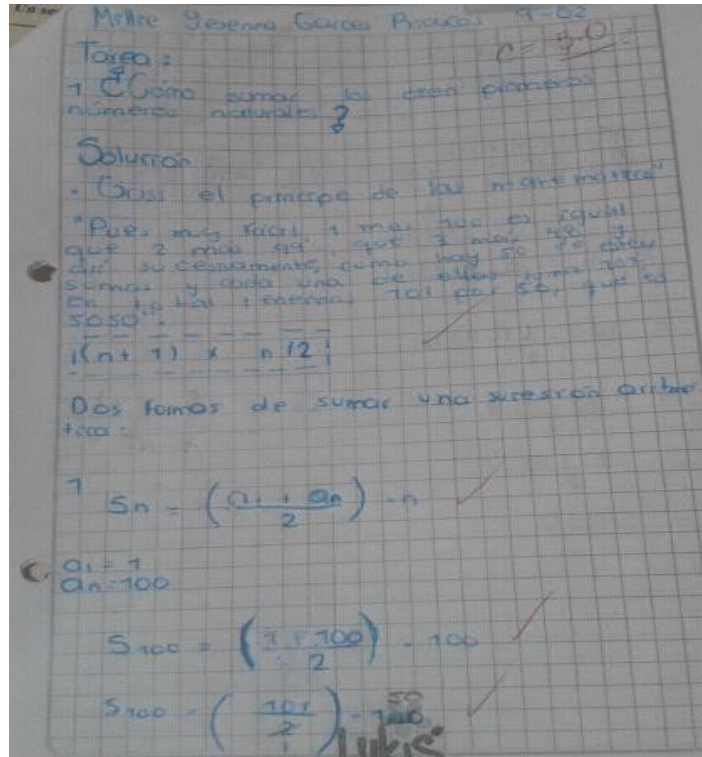 Yesenia Garces 9-02
c = 5.0
Tarea:
1 ¿Cómo sumar los cien primeros
números naturales?
Solución
· Gauss el principe de las matematicas"
"Pues muy facil, 1 mas 100 es igual
que 2 mas 99, que 3 mas 98 y
asi sucesivamente, como hay 50 de estas
sumas y cada una de ellas suma 101,
en total tenemos 101 por 50, que es
5050".
(n + 1) x n/2
Dos formas de sumar una sucesión aritme
tica:
1 Sn = (a1 + an / 2) · n
a1 = 1
an = 100
S100 = (1 + 100 / 2) · 100
S100 = (101 / 2) · 100 50
1
Lukis